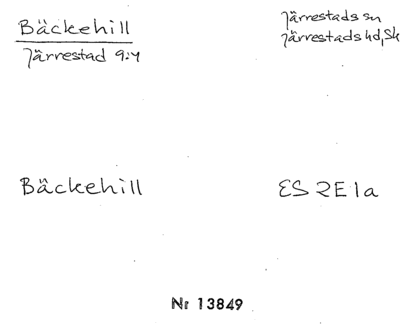 Bäckehill
Järrestad 9:4
Järrestads sn
Järrestads hd, Sk
Bäckehill
ES 2E1a
Nr 13849